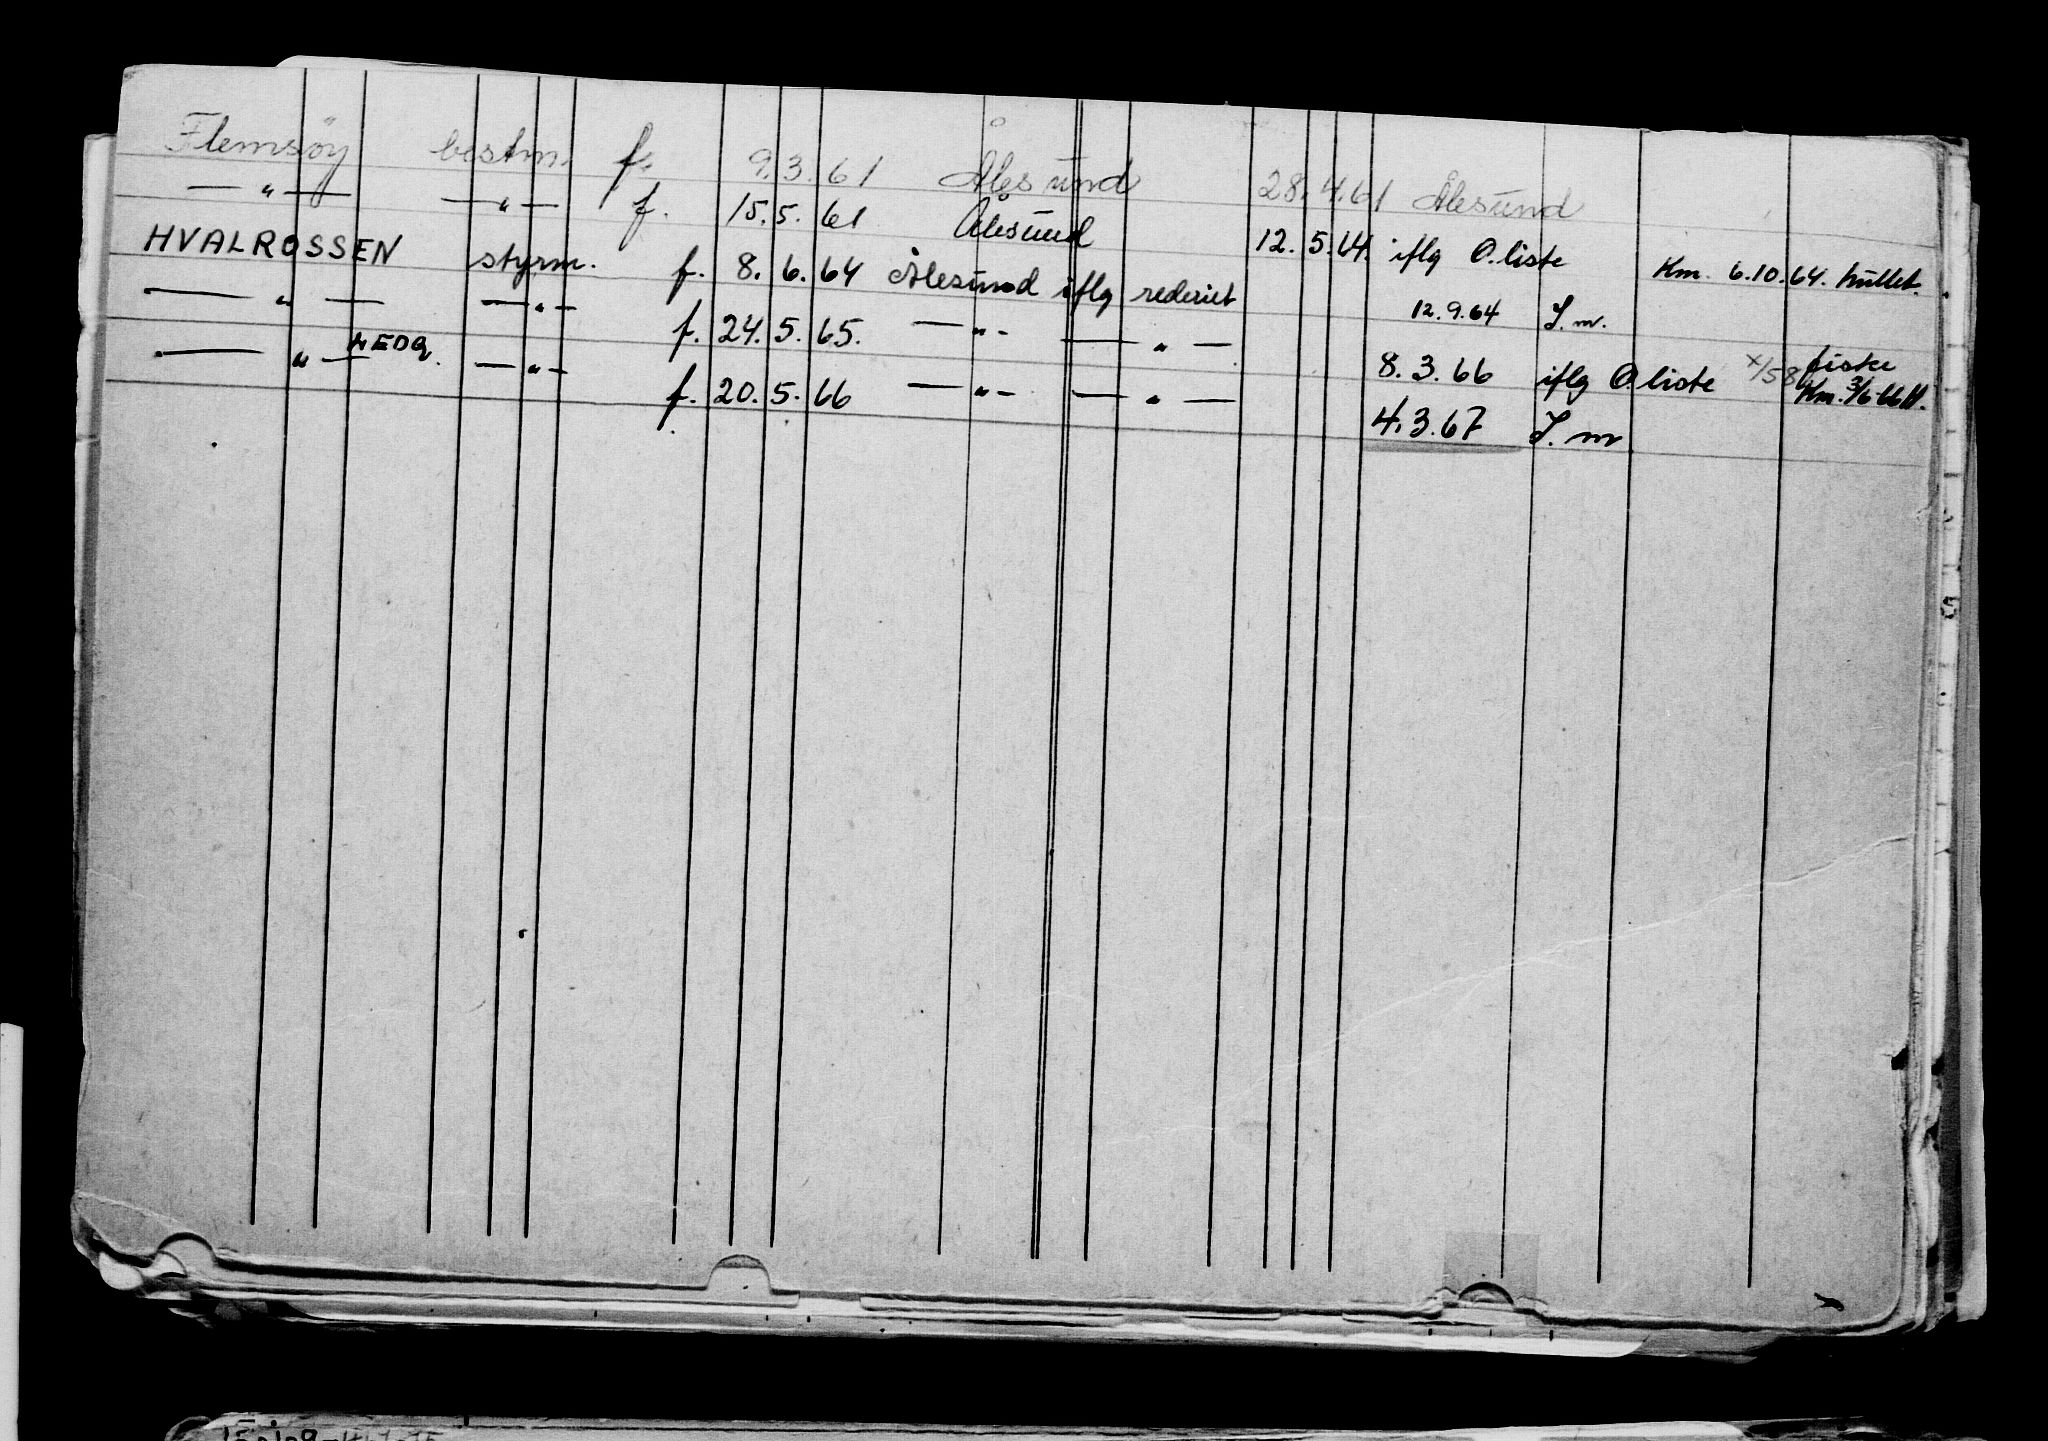 Flemsøy bestm. f. 9.3.61 Ålesund 28.4.61 Ålesund
— " — — " — f. 15.5.61 Ålesund 12.5.64. iflg O.liste Km. 6.10.64. hullet.
HVALROSSEN styrm. f. 8.6.64 Ålesund iflg rederiet 12.9.64 S.m.
— " — — " — f. 24.5.65. — " — — " — 8.3.66 iflg O liste x/58 fiske Km. 3/6-66 H.
— " — — " — f. 20.5.66 — " — — " — 4.3.67 S.m